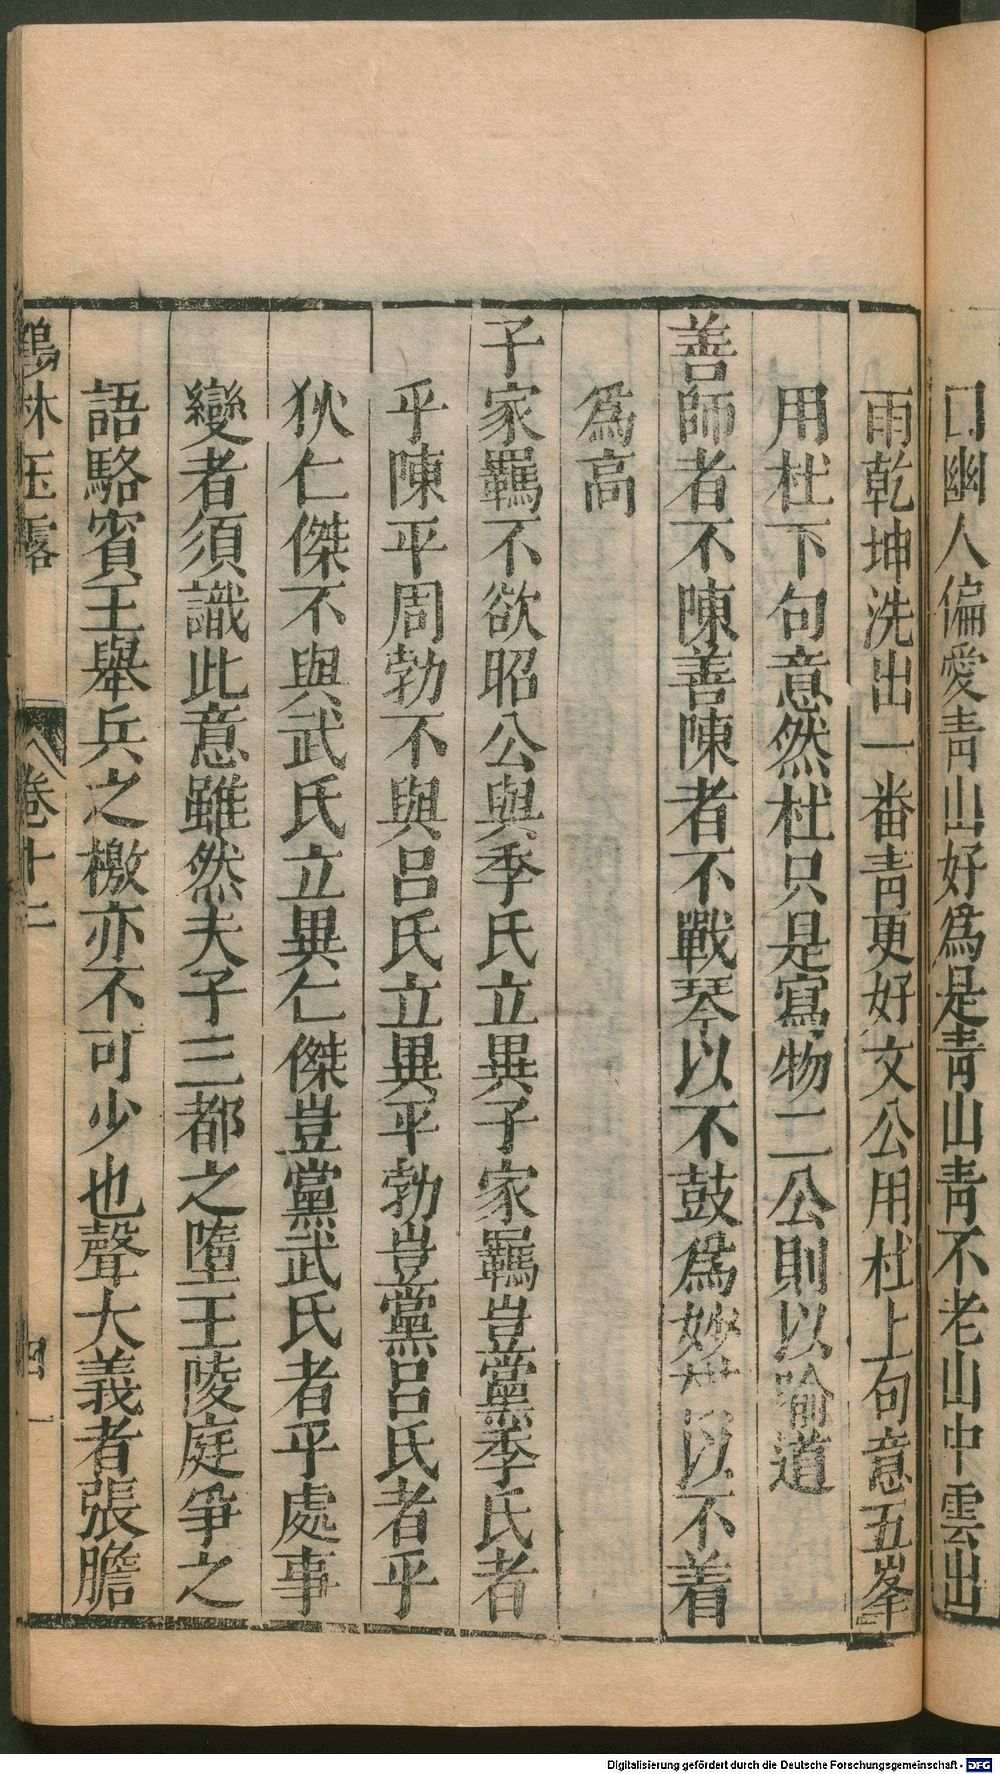 口幽人偏愛青山好爲是青山青不老山中雲出
雨乾坤洗出一番青更好文公用杜上句意五峯
用杜下句意然杜只是寫物二公則以喻道
善師者不陳善陳者不戰琴以不鼓爲妙棋以不着
爲高
子家羈不欲昭公與季氏立異子家羈豈黨季氏者
乎陳平周勃不與呂氏立異平勃豈黨呂氏者乎
狄仁傑不與武氏立異仁傑豈黨武氏者乎處事
變者須識此意雖然夫子三都之墮王陵庭爭之
語駱賓王舉兵之檄亦不可少也聲大義者張膽
鶴林玉露
卷十二
四
Digitalisierung gefördert durch die Deutsche Forschungsgemeinschaft - DFG